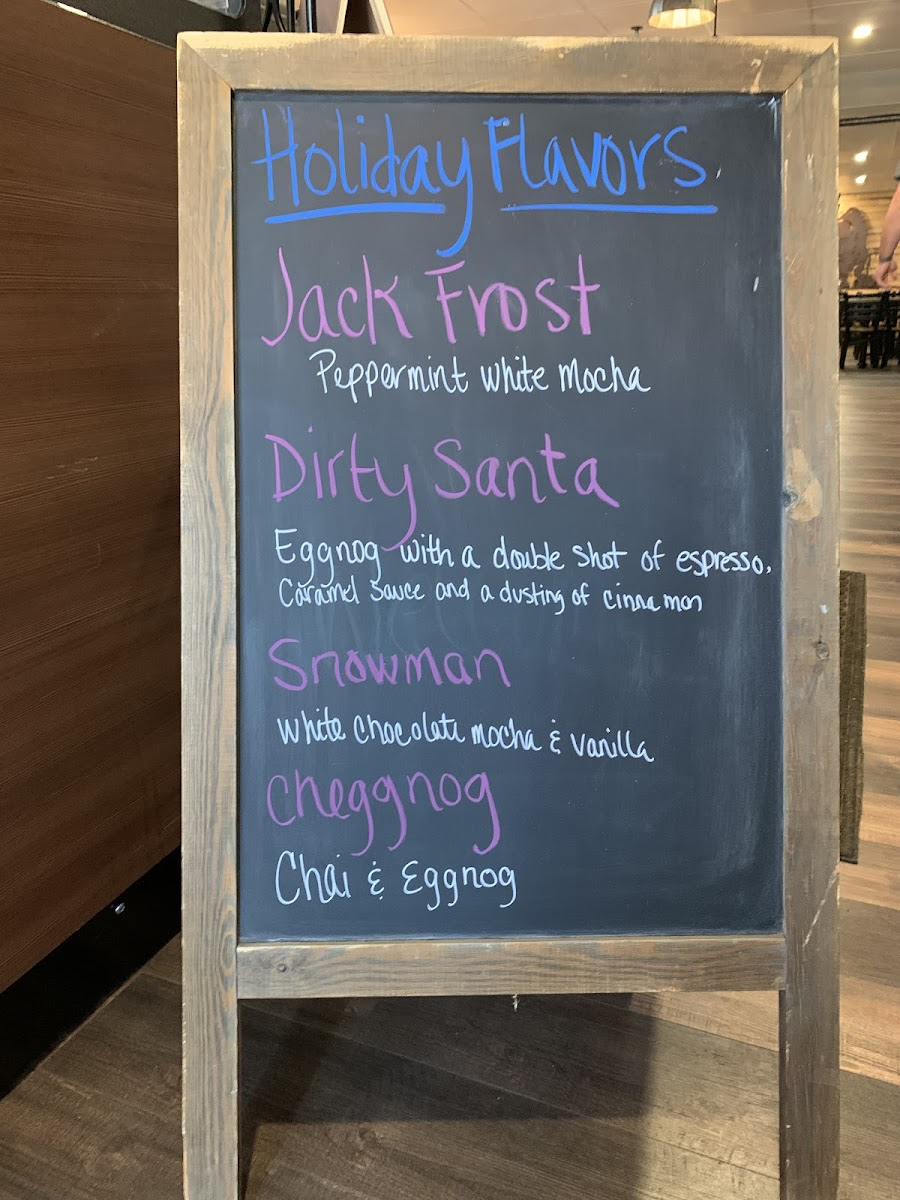 Holiday Flavors
Jack Frost
Peppermint white Mocha
Dirty Santa
Eggnog with a double shot of espresso,
Caramel Sauce and a dusting of cinnamon
Snowman
White chocolate mocha & vanilla
Cheggnog
Chai & Eggnog